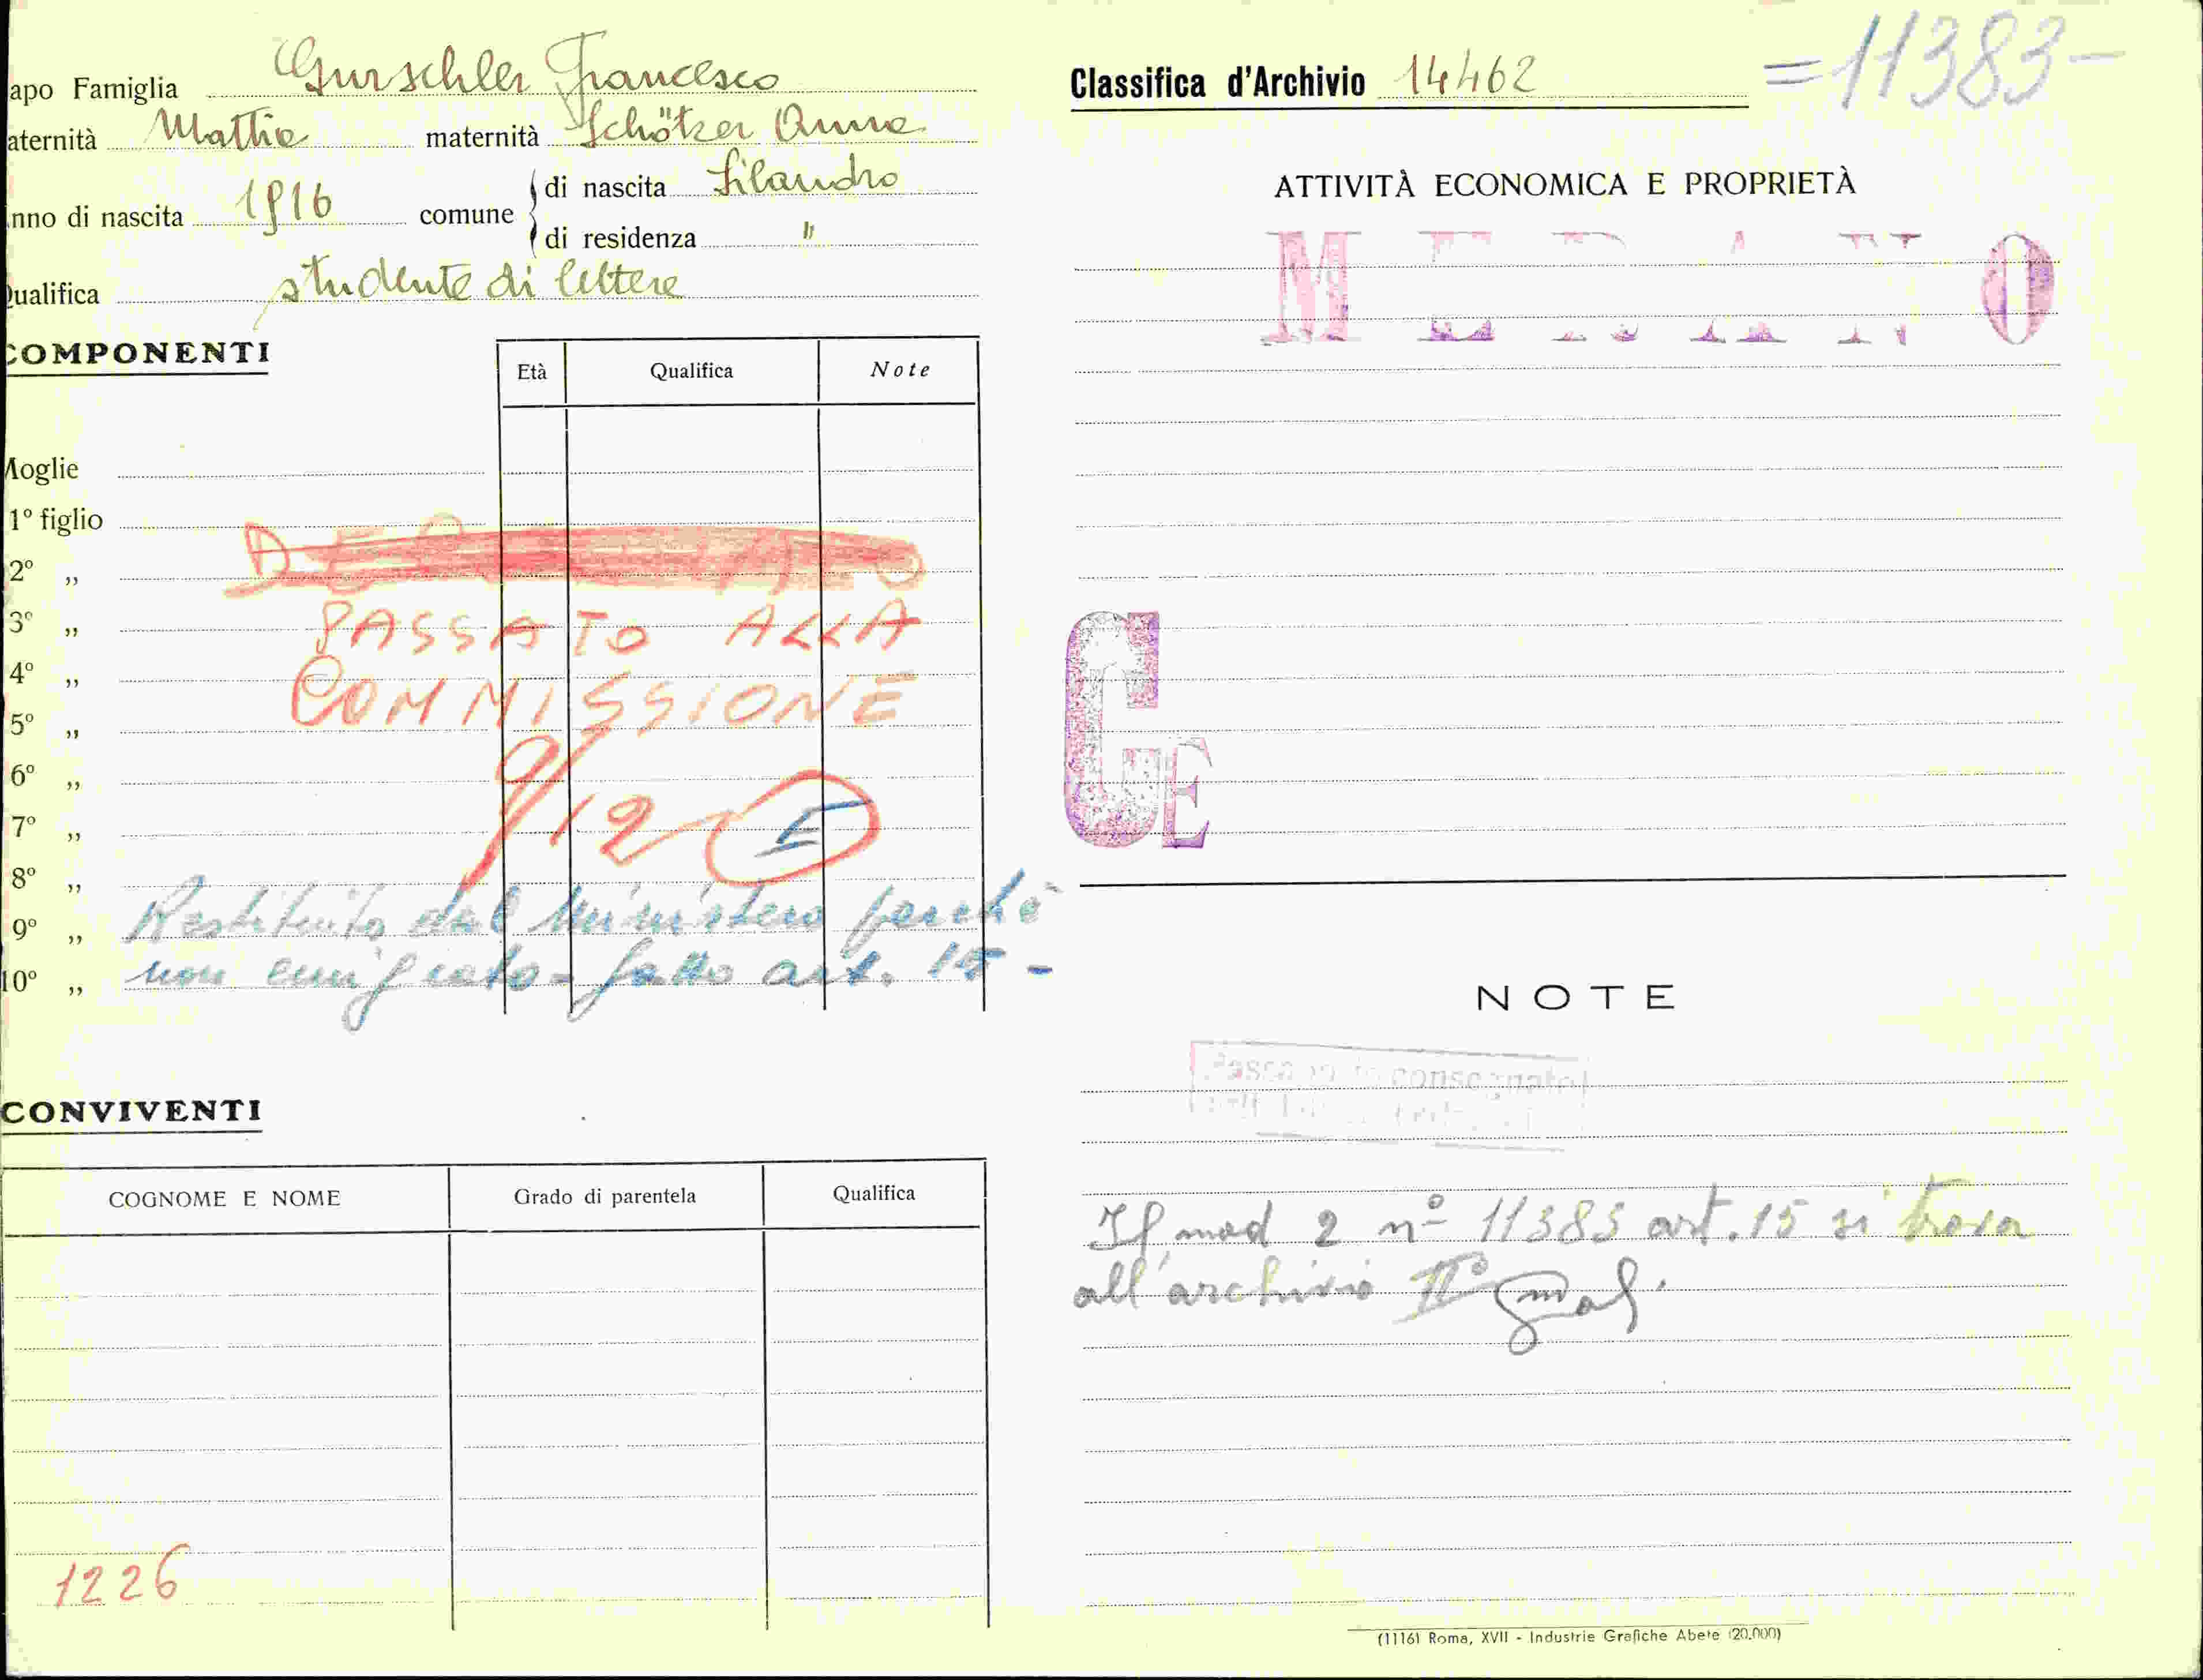 apo Famiglia Gurschler Francesco
aternità Mattia maternità Schötzer Anna
nno di nascita 1916 comune di nascita Silandro
di residenza "
ualifica studente di lettere
COMPONENTI
Età Qualifica Note
Moglie
1º figlio
2º „
3º „
4º „
5º „
6º „
7º „
8º „
9º „
10º „
PASSATO ALLA
COMMISSIONE
9/12
Restituito dal Ministero perchè
non emigrato - fatto art. 15 -
CONVIVENTI
COGNOME E NOME Grado di parentela Qualifica
1226
Classifica d'Archivio 14462 =11383-
ATTIVITÀ ECONOMICA E PROPRIETÀ
MERANO
GE
NOTE
consegnato
Il mod 2 nº 11383 art. 15 si trova
all'archivio IIº
(1116) Roma, XVII - Industrie Grafiche Abete (20.000)